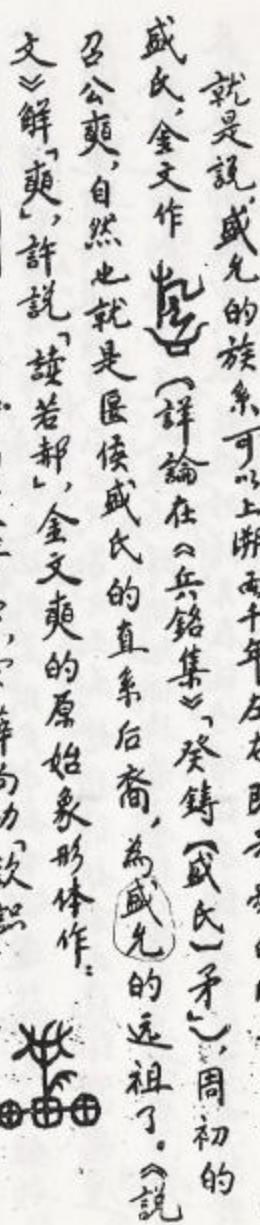 就是説，盛允的族系可以上溯兩千年左右
盛氏，金文作（詳論在《兵銘集》「癸鑄【盛氏】矛」），周初的
召公奭，自然也就是匽侯盛氏的直系后裔，為盛允的远祖了。《説
文》解「奭」，許説「讀若郝」，金文奭的原始象形体作：